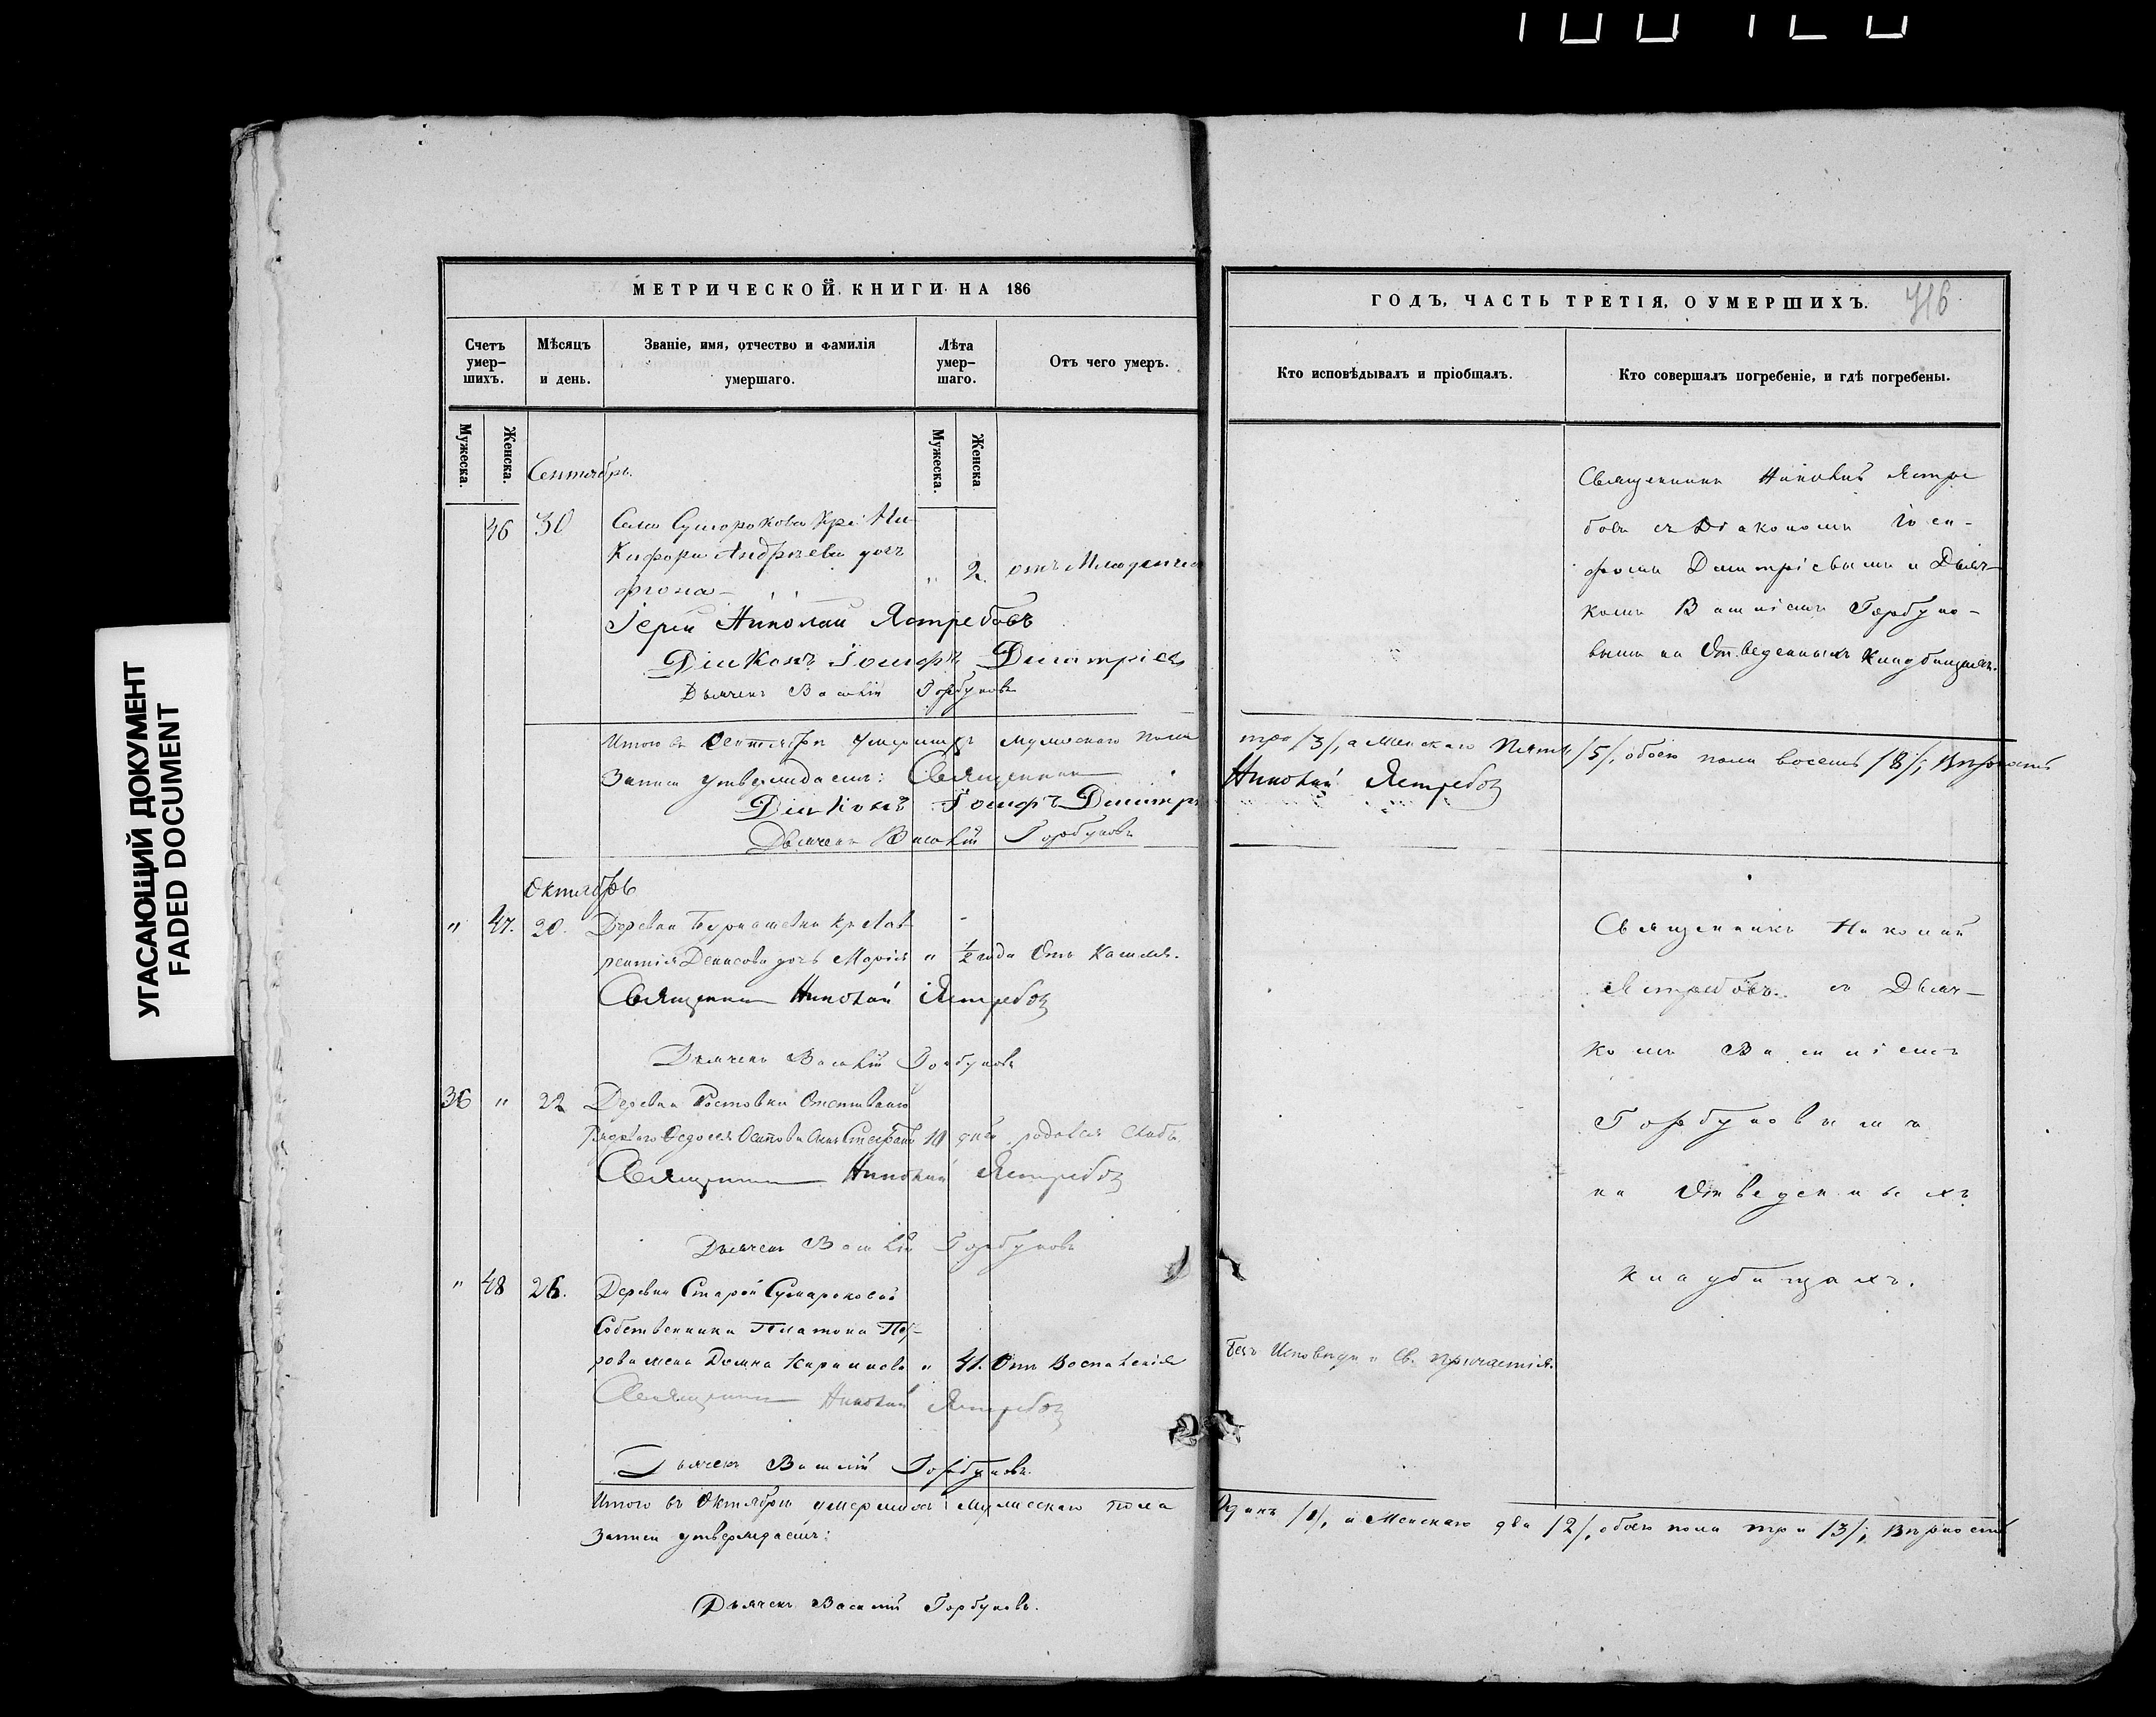 УГАСАЮЩИЙ ДОКУМЕНТ
FADED DOCUMENT
МЕТРИЧЕСКОЙ КНИГИ НА 186
Счетъ умер-шихъ.
Мѣсяцъ и день.
Званіе, имя, отчество и фамилія умершаго.
Лѣта умер-шаго.
Отъ чего умеръ.
Мужеска.
Женска.
Мужеска.
Женска
Сентябрь.
46 30 Села Сумарокова кр: Ни-
кифора Андреева дочь
" 2. отъ Младенчес
Іерей Николай Ястребовъ
Діаконъ Іосифъ Димитріевъ
Дьячекъ Василій Горбуновъ
Итого въ Сентябрѣ умершихъ мужескаго пола
Записи утверждаемъ: Священникъ
Діаконъ Іосифъ Димитрі
Дьячекъ Василій Горбуновъ
Октябрь
" 47. 20. Деревни Бурнашевки кр Лав-
рентія Денисова дочь Марія " ½ года Отъ Кашля.
Священникъ Николай Ястребовъ
Дьячекъ Василій Горбуновъ
36 " 22 Деревни Ростовки Отставнаго
Рядоваго Федосея Осипова сынъ Стефанъ 10 дней родился слабъ
Священникъ Николай Ястребовъ
Дьячекъ Василій Горбуновъ
" 48 26. Деревни Старой Сумароковой
Собственника Платона Пет-
рова жена Домна Кирилова " 41. Отъ Воспаленія
Священникъ Николай Ястребовъ
Дьячекъ Василій Горбуновъ.
Итого въ Октябрѣ умершихъ мужескаго пола
Записи утверждаемъ:
Дьячекъ Василій Горбуновъ.
ГОДЪ, ЧАСТЬ ТРЕТІЯ, О УМЕРШИХЪ.
716
Кто исповѣдывалъ и пріобщалъ.
Кто совершалъ погребеніе, и гдѣ погребены.
Священникъ Николай Ястре
бовъ съ Діакономъ Іоси-
фомъ Димитріевымъ и Дьяч-
комъ Василіемъ Горбуно-
вымъ на Отведенныхъ Кладбищахъ.
три /3/, а Женскаго Пять /5/, обоего пола восемь /8/; Вѣрность
Николай Ястребовъ
Священникъ Николай
Ястребовъ съ Дьяч-
комъ Василіемъ
Горбуновымъ
на Отведенныхъ
кладбищахъ.
Безъ Исповѣди и Св. причастія.
Одинъ /1/, а Женскаго два /2/, обоего пола три /3/; Вѣрность